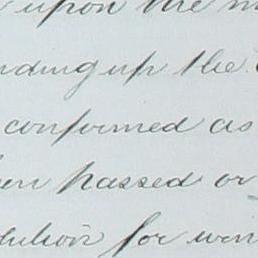 upon the m
nding up the
confirmed as
en passed or
olution for win